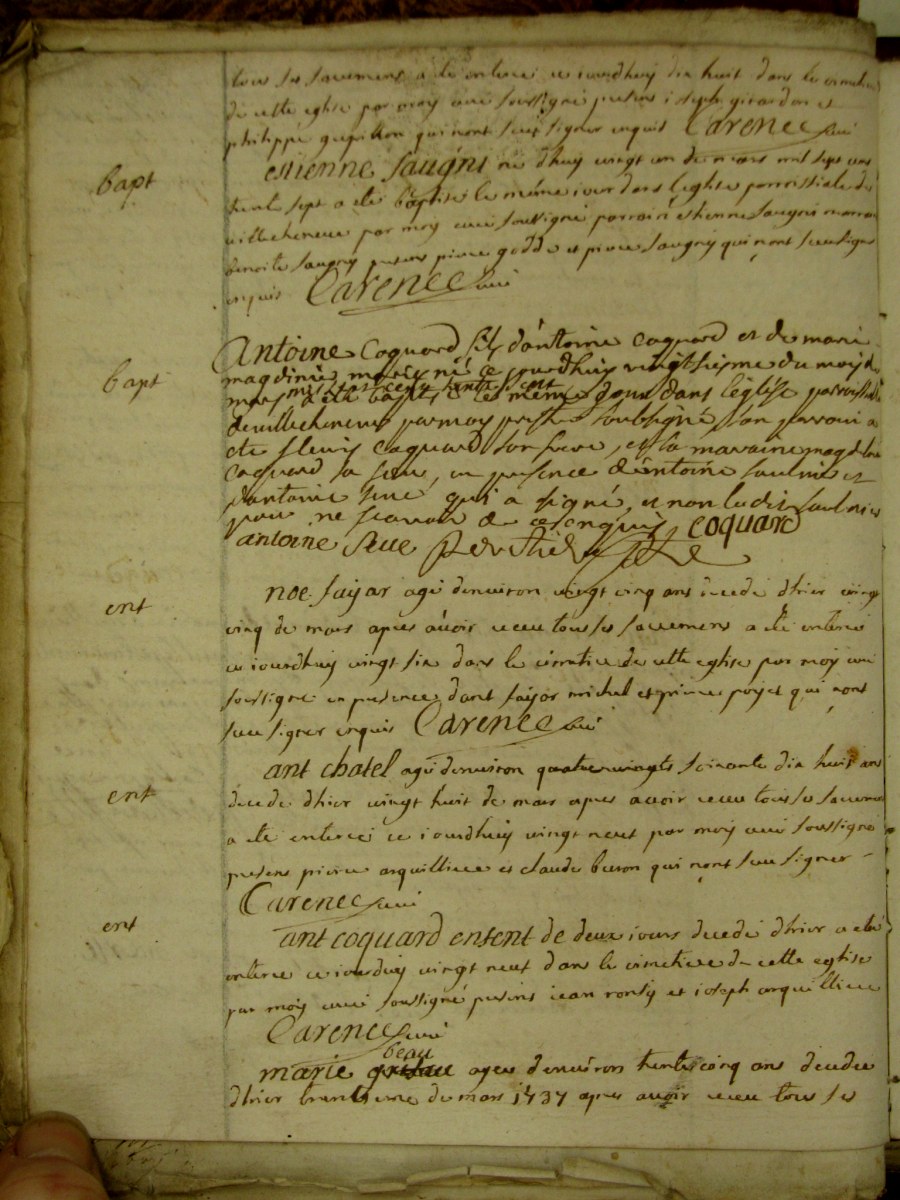 tous ses sacremens a eté enterré ce iourdhuy dix huit dans le cimetiere
de cette eglise par moy curé soussigné presens ioseph girardon et
philippe qui nont sceu signer enquis Carence curé
bapt
estienne saugni né dhuy vingt un de mars mil sept cens
trente sept a eté baptisé le même iour dans leglise parroissiale de
villecheneve par moy curé soussigné parrain estienne saugni marraine
benoite saugny presens pierre godde et pierre saugny qui nont sceu signer
enquis Carence curé
bapt
Antoine Coquard fils d'antoine coquard et de marie
magdinié né ce jourdhuy vingtsiesme du mois de
mars mil sept cens trente sept a eté baptisé le meme jour dans l'église parroissiale
de villecheneve par moy pretre soubsigné, son parrain a
eté fleuris coquard son frere, et sa maraine magdelene
coquard sa seur, en presence d'antoine saulnier et
d'antoine seve qui a signé, et non ledit saulnier
pour ne scavoir de ce enquis coquard
antoine seve
ent
noe fayar agé denviron vingt cinq ans decedé dhier vingt
cinq de mars apres avoir receu tous ses sacremens a eté enterré
ce iourdhuy vingt six dans le cimetiere de cette eglise par moy curé
soussigné en presence dant fayar michel et pierre pojet qui nont
sceu signer enquis Carence curé
ent
ant chatel agé denviron quatrevingts soixante dix huit ans
decedé dhier vingt huit de mars apres avoir receu tous ses sacremens
a eté enterré ce iourdhuy vingt neuf par moy curé soussigné
presens pierre arquilliere et claude buron qui nont sceu signer
Carence curé
ent
ant coquard enfent de deux iours decedé dhier a eté
enterré ce iourdhuy vingt neuf dans le cimetiere de cette eglise
par moy curé soussigné presens iean ronsy et ioseph arquilliere
Carence curé
beau
marie agée denviron trente cinq ans decedée
dhier trentieme de mars 1737 apres avoir receu tous ses